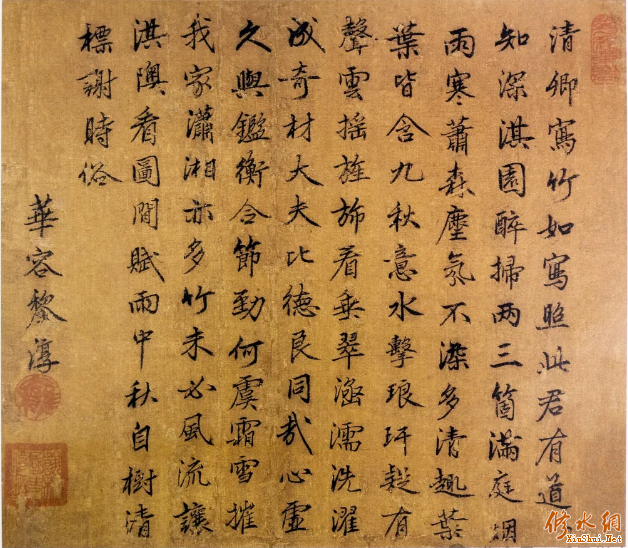 清卿寫竹如寫照此君有道
知深淇園醉掃两三箇滿庭烟
雨寒蕭森塵氛不染多清趣葉
葉皆含九秋意水擊琅玕疑有
聲雲搖旌旆看垂翠涵濡洗濯
成奇材大夫比德良同哉心虛
久與鑑衡合節勁何虞霜雪摧
我家瀟湘亦多竹未必風流讓
淇隩看圖閒賦雨中秋自樹清
標謝時俗
華容黎淳
修水网
XiuShui.Net